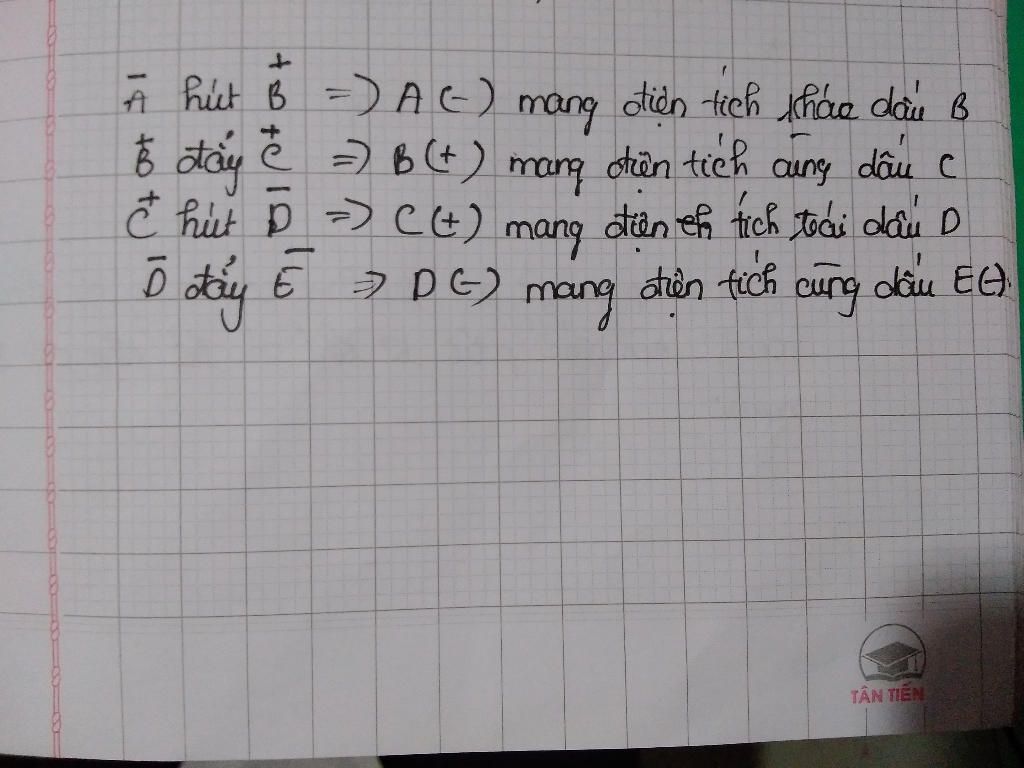 A⁻ hút B⁺ => A (-) mang điện tích khác dấu B
B⁺ đẩy C⁺ => B (+) mang điện tích cùng dấu C
C⁺ hút D⁻ => C (+) mang điện tích dấu D
D⁻ đẩy E⁻ => D (-) mang điện tích cùng dấu E (-).
TÂN TIẾN